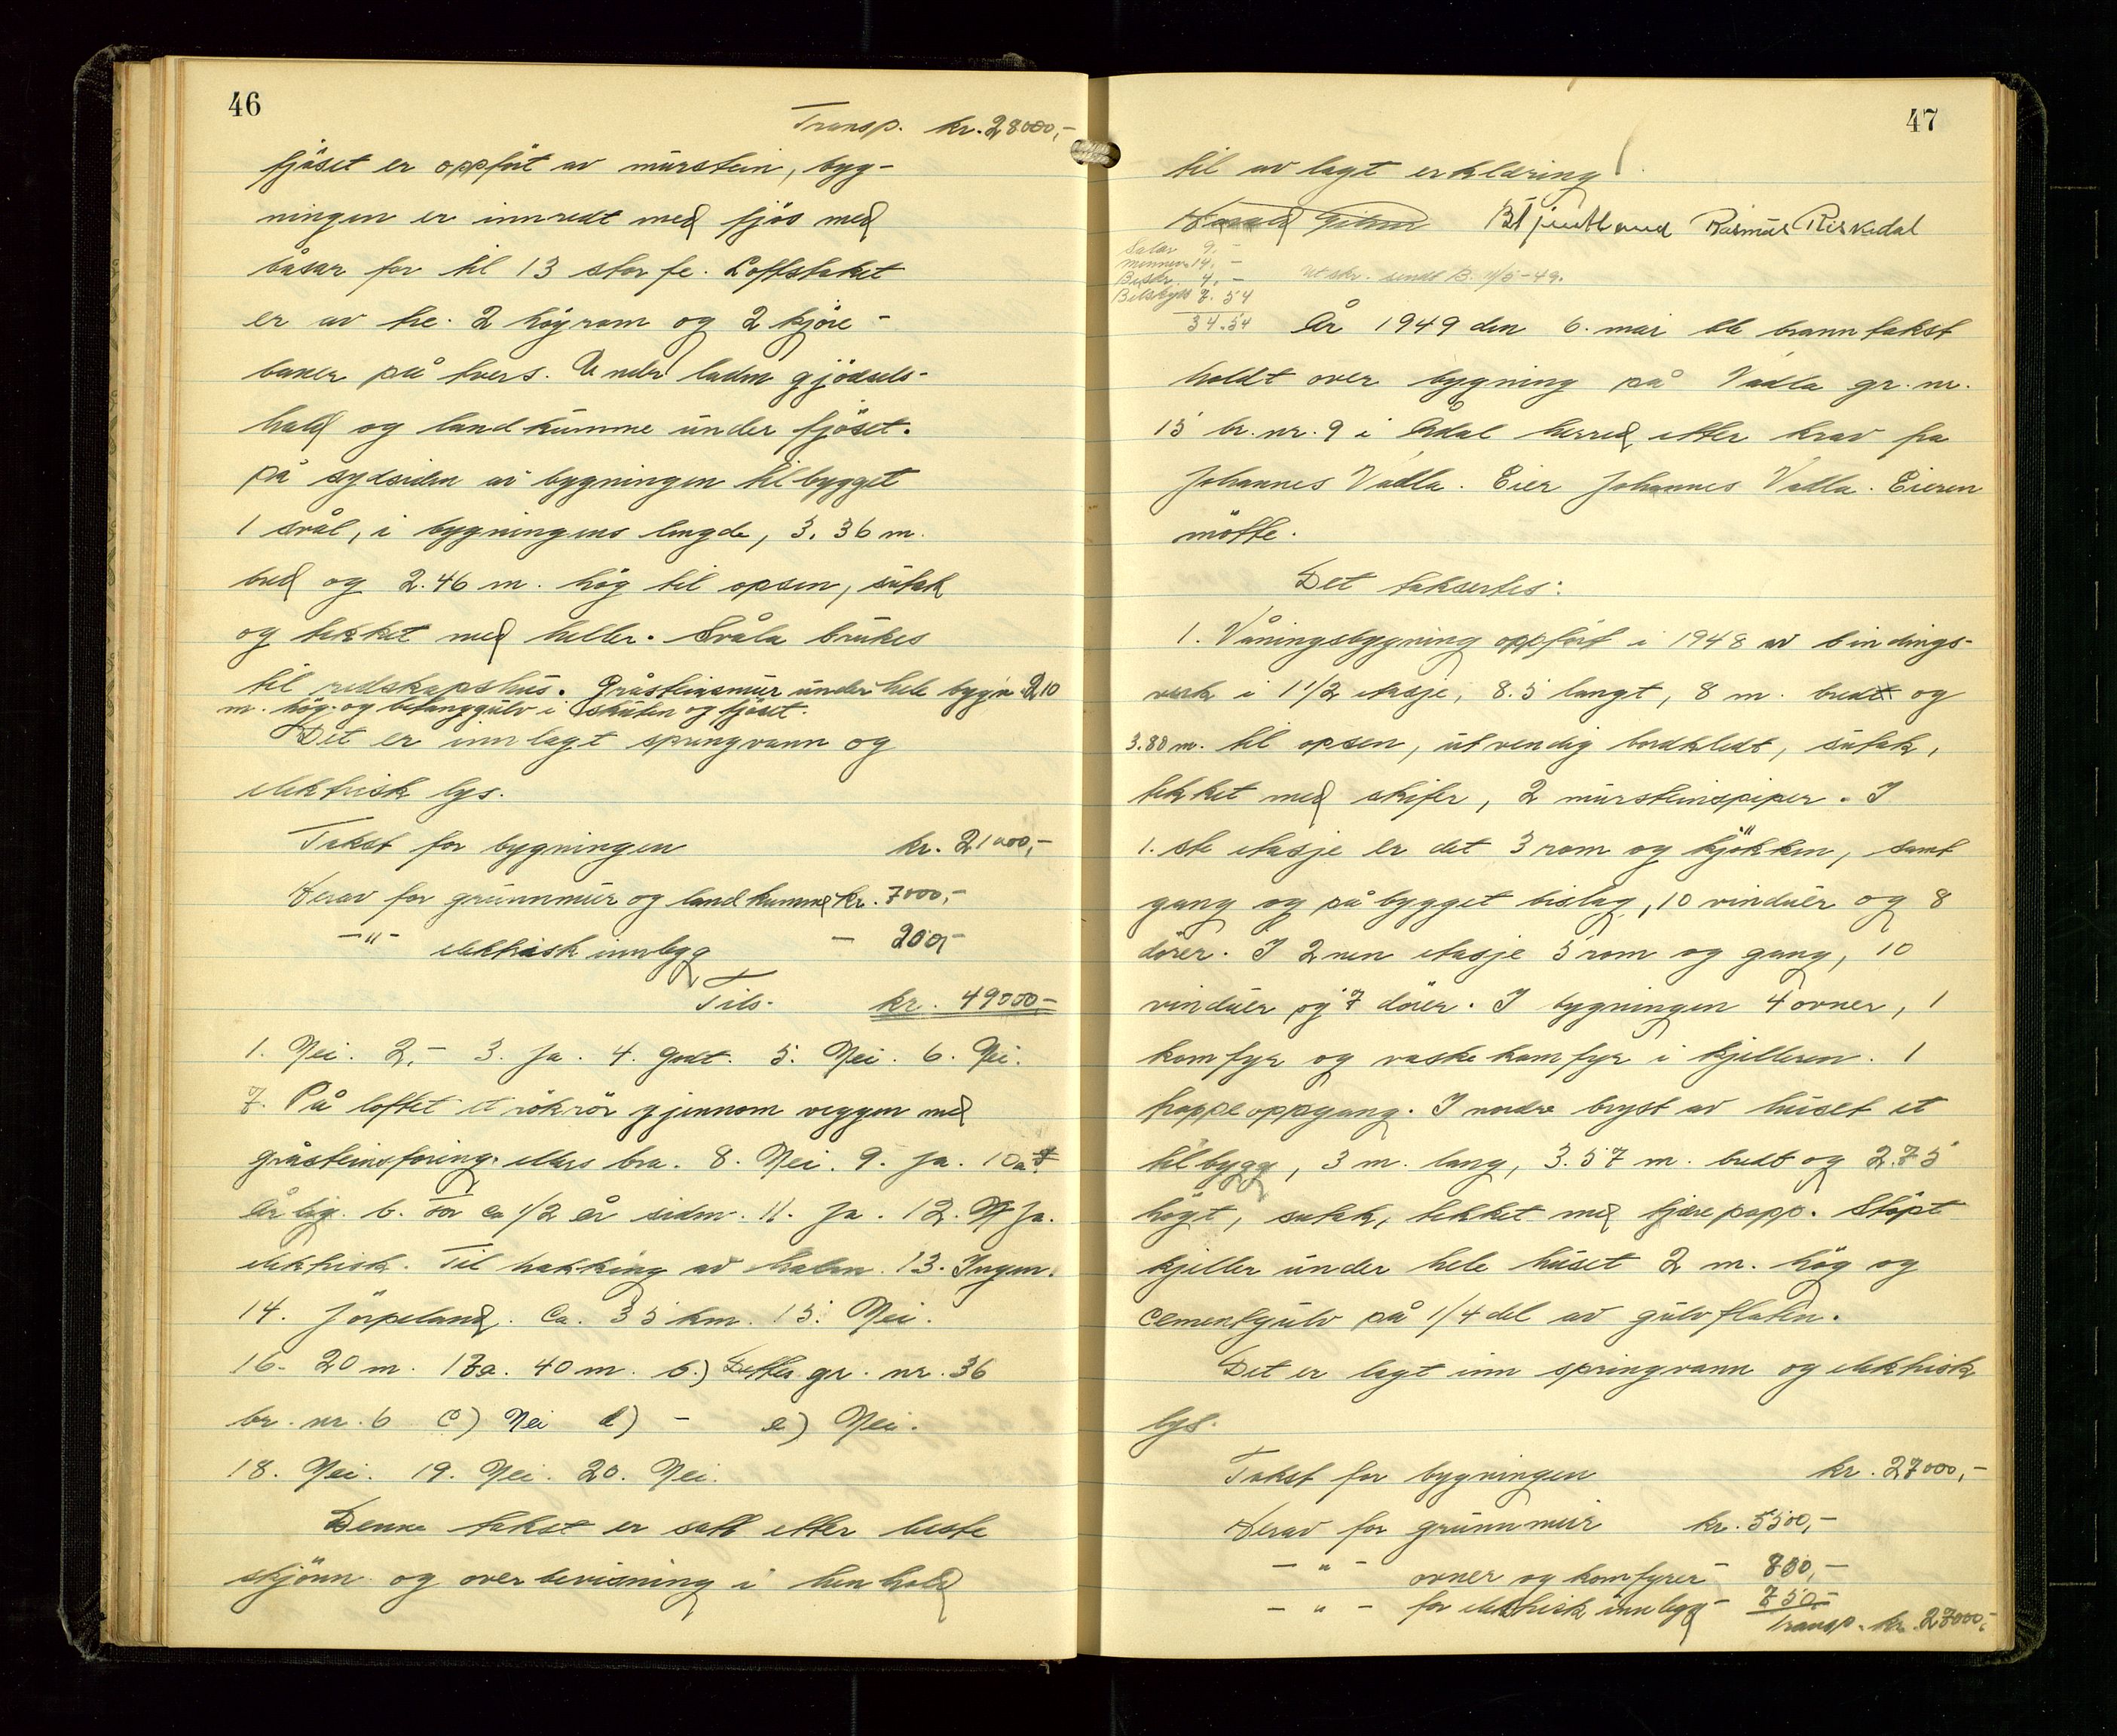 46
Transp. kr. 28000,-
fjöset er oppfört av murstein, byg-
ningen er innredt med fjös med
båsar for til 13 stor fe. Loftstaket
er av tre. 2 höyrom og 2 kjöre-
baner på tvers. Under laden gjödsels-
hald og landkumme under fjöset.
På sydsiden av bygningen tilbygget
1 sval, i bygningens lengde, 3.36 m.
bred og 2.46 m. hög til opsen, sutak
og tekket med heller. Svåla brukes
til redskapshus. Gråsteinsmur under hele bygn. 2,10
m. hög. og betonggulv i skuten og fjöset.
Det er innlagt springvann og
elektrisk lys.
Takst for bygningen kr. 21000,-
Herav for grunnmur og landkumme kr. 7000,-
-"- elektrisk innlegg - 200,-
Tils. kr. 49000-
1. Nei. 2.- 3. Ja. 4. Godt. 5. Nei. 6. Nei.
7. På loftet et rökrör gjennom veggen med
gråsteinsforing. ellers bra. 8. Nei. 9. Ja. 10a
Årlig. b. for ca 1/2 år siden. 11. Ja. 12. Ja.
elektrisk. Til hakking av halm. 13. Ingen.
14. Jörpeland. Ca. 35 km. 15. Nei.
16. 20 m. 17a. 40 m. b.) Dette gr. nr. 36
br. nr. 6 c) Nei d) - e) Nei.
18. Nei. 19. Nei. 20. Nei.
Denne takst er satt etter beste
skjönn og overbevisning i henhold
47
til avlagt erklæring
B Tjentland Rasmus Riskedal
Salær 9.-
14.-
Beskr. 4.-
Bilskyss 7.54
34.54
Utskr. sendt B. 9/5-49.
År 1949 den 6. mai ble branntakst
holdt over bygning på Vadla gr. nr.
15 br. nr. 9 i Årdal herred etter krav fra
Johannes Vadla. Eier Johannes Vadla. Eieren
mötte.
Det taksertes:
1. Våningsbygning oppfört i 1948 av bindings-
verk i 1 1/2 etasje, 8.5 langt, 8 m. bredt og
3.80 m. til opsen, utvendig bordkledt, sutak,
tekket med skifer, 2 mursteinspiper. I
1.ste etasje er det 3 rom og kjökken, samt
gang og påbygget bislag, 10 vinduer og 8
dörer. I 2nen etasje 5 rom og gang, 10
vinduer og 7 dörer. I bygningen 4 ovner, 1
komfyr og vaskekomfyr i kjelleren. 1
trappeoppgang. I nordre bryst av huset et
tilbygg, 3 m. lang, 3.57 m. bredt og 2.75
högt, sutak, tekket med tjærepapp. Stöpt
kjeller under hele huset 2 m. hög og
cementgulv på 1/4 del av gulvflaten.
Det er lagt inn springvann og elektrisk
lys.
Takst for bygningen kr. 27000,-
Herav for grunnmur kr. 5500,-
-"- ovner og komfyrer - 800,-
-"- for elektrisk innlegg - 750,-
Transp. kr. 27000,-